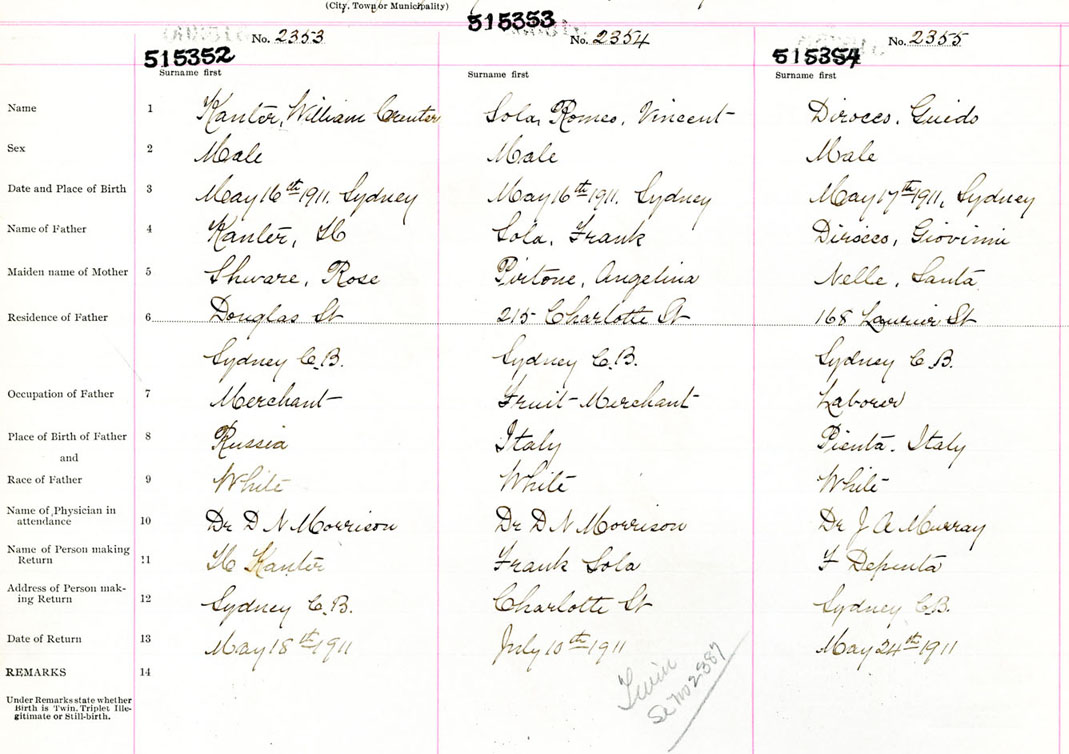 (City, Town or Municipality)
515353
No. 2353
No. 2354
No. 2355
515352
515354
Surname first
Surname first
Surname first
Name 1 Kanter, William Creuter Sola, Romeo, Vincent Dirocco, Guido
Sex 2 Male Male Male
Date and Place of Birth 3 May 16th 1911. Sydney May 16th 1911. Sydney May 17th 1911, Sydney
Name of Father 4 Kanter, H Sola, Frank Dirocco, Giovinni
Maiden name of Mother 5 Shware, Rose Pirtone, Angelina Nelle, Santa
Residence of Father 6 Douglas St 215 Charlotte St 168 Laurier St
Sydney C.B. Sydney C.B. Sydney C.B.
Occupation of Father 7 Merchant Fruit-Merchant Laborer
Place of Birth of Father 8 Russia Italy Pienta. Italy
and
Race of Father 9 White White White
Name of Physician in
attendance 10 Dr D N Morrison Dr D N Morrison Dr J A Murray
Name of Person making
Return 11 H Kanter Frank Sola F Depenta
Address of Person mak-
ing Return 12 Sydney C.B. Charlotte St Sydney C.B.
Date of Return 13 May 18th 1911 July 10th 1911 May 24th 1911
REMARKS 14
Twin
Se No 2387
Under Remarks state whether
Birth is Twin, Triplet Ille-
gitimate or Still-birth.